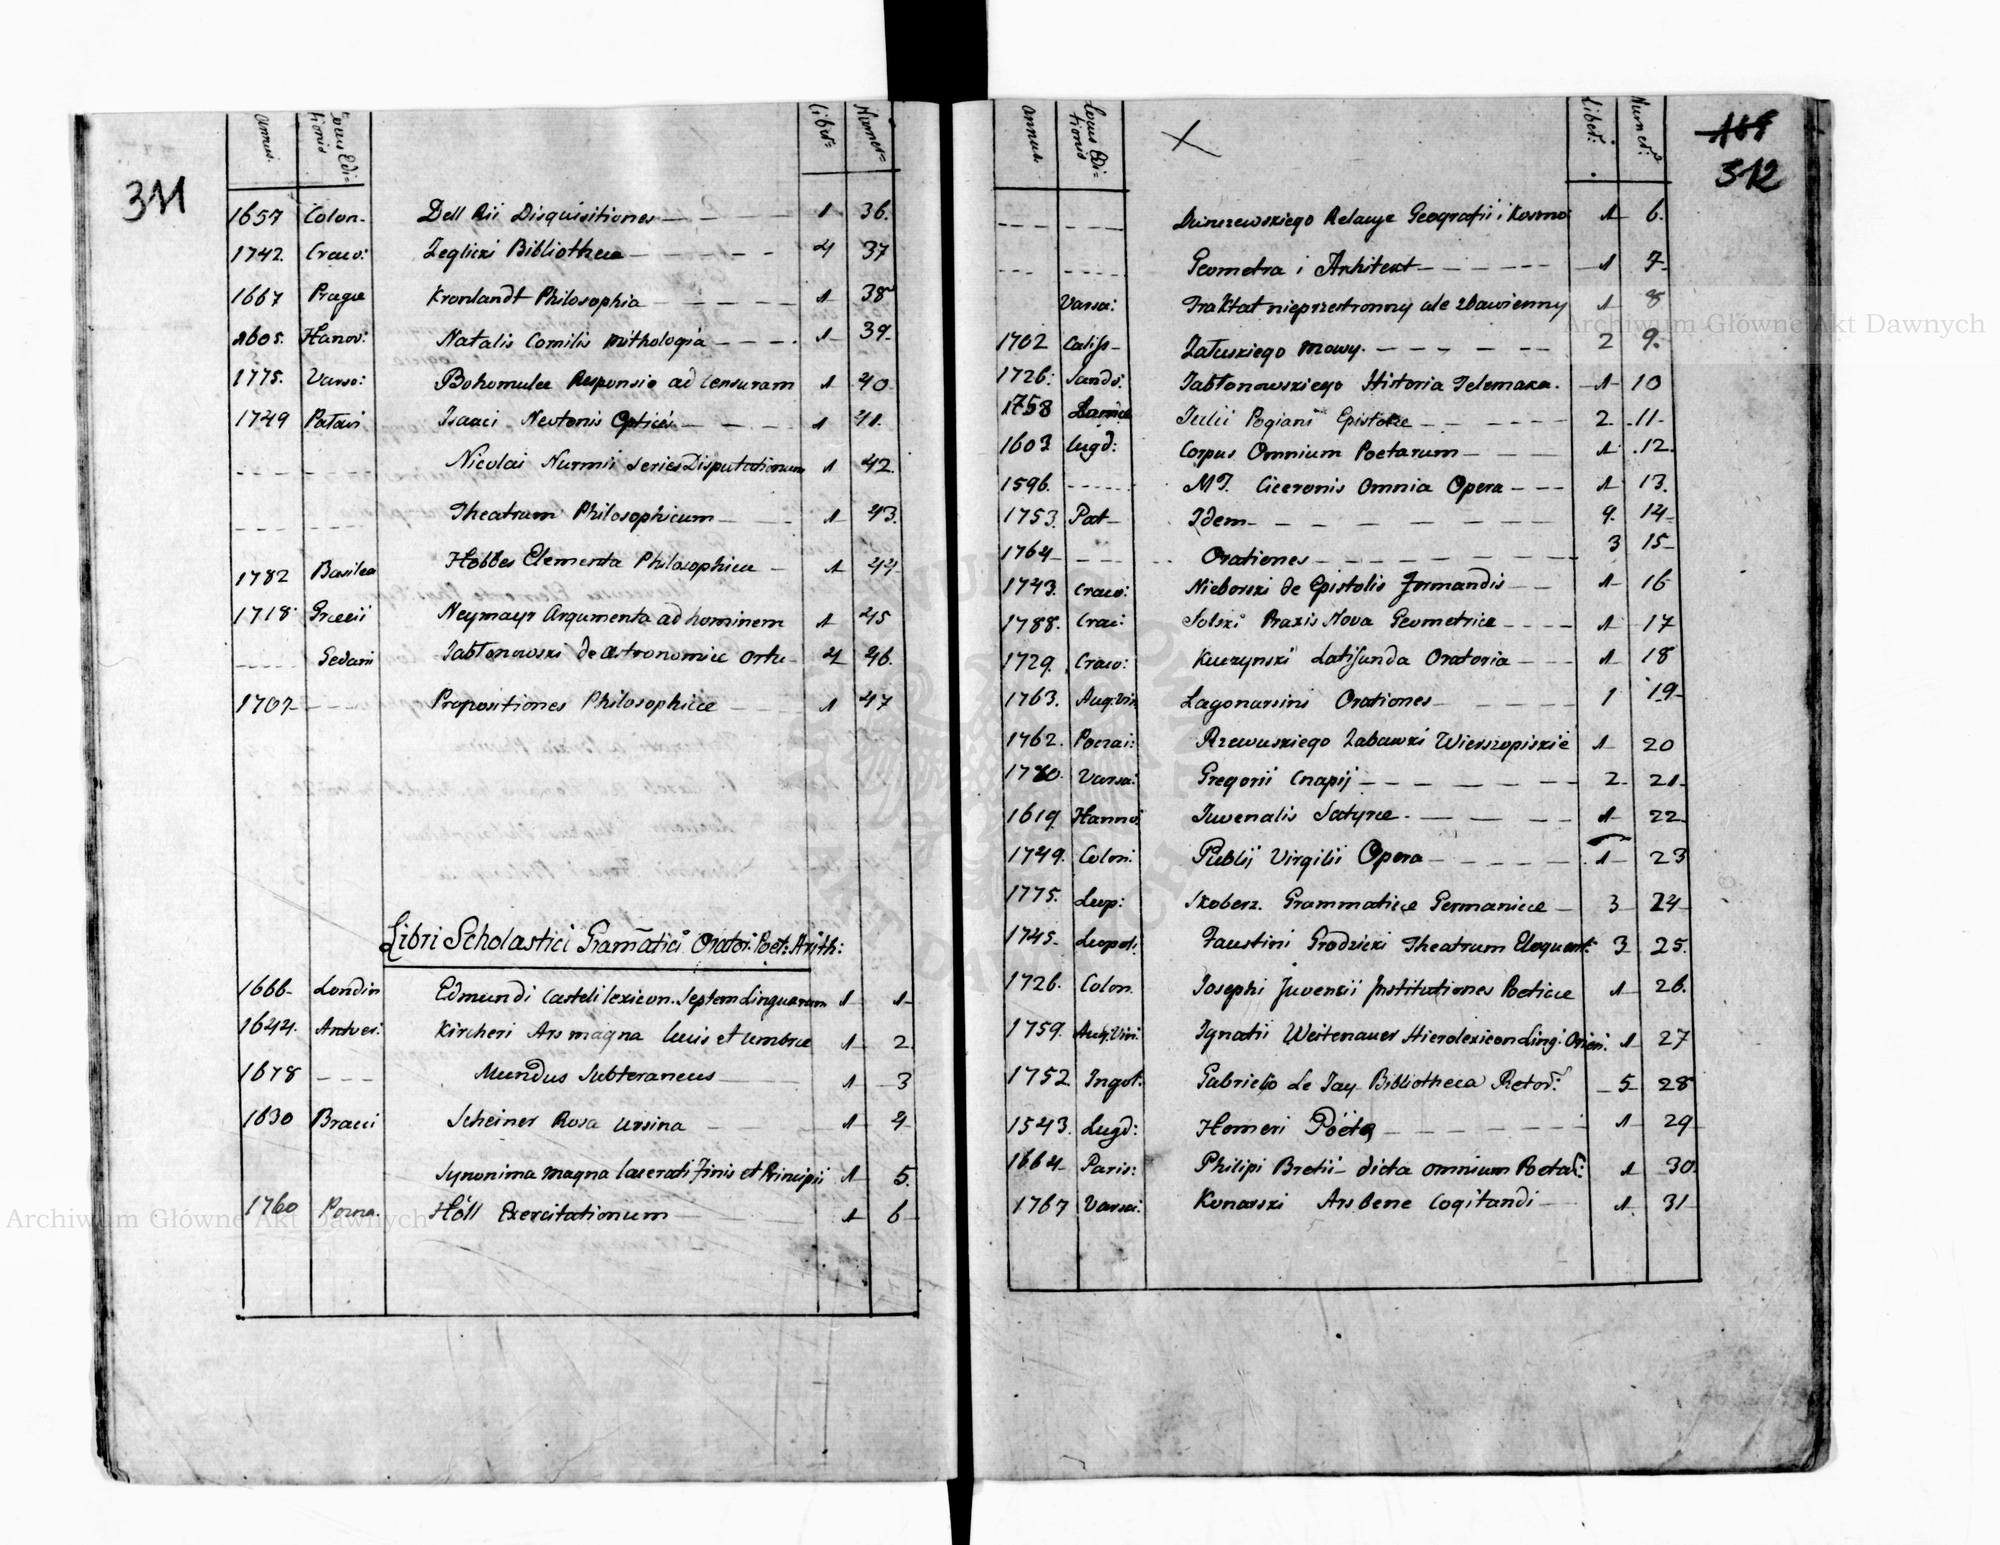 311
Annus. Locus Edi= tionis Libri= Numer=
1657 Colon. Dell Rii Disquisitiones 1 36.
1742 Craco: Zeglicki Bibliotheca 4 37
1667 Prague Kronlandt Philosophia 1 38
1605. Hanov: Natalis Comilis Mithologia 1 39.
1775. Varso: Bohomulec Responsio ad Censuram 1 40
1749 Patavi Isaaci Neutonis Optices 1 41.
Nicolai Nurmii Series Disputationum 1 42
Theatrum Philosophicum 1 43.
1782 Basilea Hobbes Elementa Philosophica 1 44
1718 Grecii Neymayr Argumenta ad hominem 1 45
Gedani Jabłonowski de Astronomice Ortu 4 46.
1702 Propositiones Philosophice 1 47
Libri Scholastici Gramatici Orator. Poet: Arith:
1666 Londin Edmundi Casteli lexicon Septem Linguarum 1 1
1644. Antver: Kircheri Ars magna lucis et umbrae 1 2
1678 Mundus Subteraneus 1 3
1630 Bracci Scheiner Rosa Ursina 1 4
Synonima magna lacerati Finis et Principii 1 5.
1760 Pozna. Höll Exercitationum 1 6
169
312
Annus. Locus Edi= tionis Liber: Numer:
Relacye Geografii i Kosmo: 1 6.
Geometra i Arhitekt 1 7
Varsa: Traktat nieprzestronny ale zbawienny 1 8
1702 Caliss Załuskiego Mowy. 2 9.
1726: Sando: Jabłonowskiego Historia Telemaka. 1 10
1758 Julii Pogiani Epistolae 2 11
1603 Lugd: Corpus Omnium Poetarum 1 12.
1596. M T. Ciceronis Omnia Opera 1 13.
1753. Pat Idem 9. 14
1764 Orationes 3 15
1743. Craco: Nieborski de Epistolis Formandis 1 16
1788. Crac: Solski Praxis Nova Geometrice 1 17
1729. Craco: Kuczynski Latifunda Oratoria 1 18
1763. Aug: Vin Lagonarsini Orationes 1 19
1762. Poznai: Rzewuskiego Zabawki Wierszopiskie 1 20
1780. Varsa: Gregorii Cnapij 2 21
1619 Hannov Juvenalis Satyre 1 22
1749. Colon: Publij Virgilii Opera 1 23
1775. Leop: Skoberz. Grammatice Germanice 3 24
1745. Leopol: Faustini Grodzicki Theatrum Eloquent: 3 25.
1726. Colon. Josephi Juvenzii Institutiones Poeticae 1 26.
1759. Aug: Vin: Ignatii Weitenauer Hierolexicon Ling: Orien. 1 27
1752 Ingol: Gabrielo Le Jay Bibliotheca Retor: 5 28
1543. Lugd: Homeri Poeta 1 29
1664 Paris: Philipi Bretii dicta omnium Poetar: 1 30
1767 Varsa: Konarski Ars bene Cogitandi 1 31
Archiwum Główne Akt Dawnych
Archiwum Główne Akt Dawnych